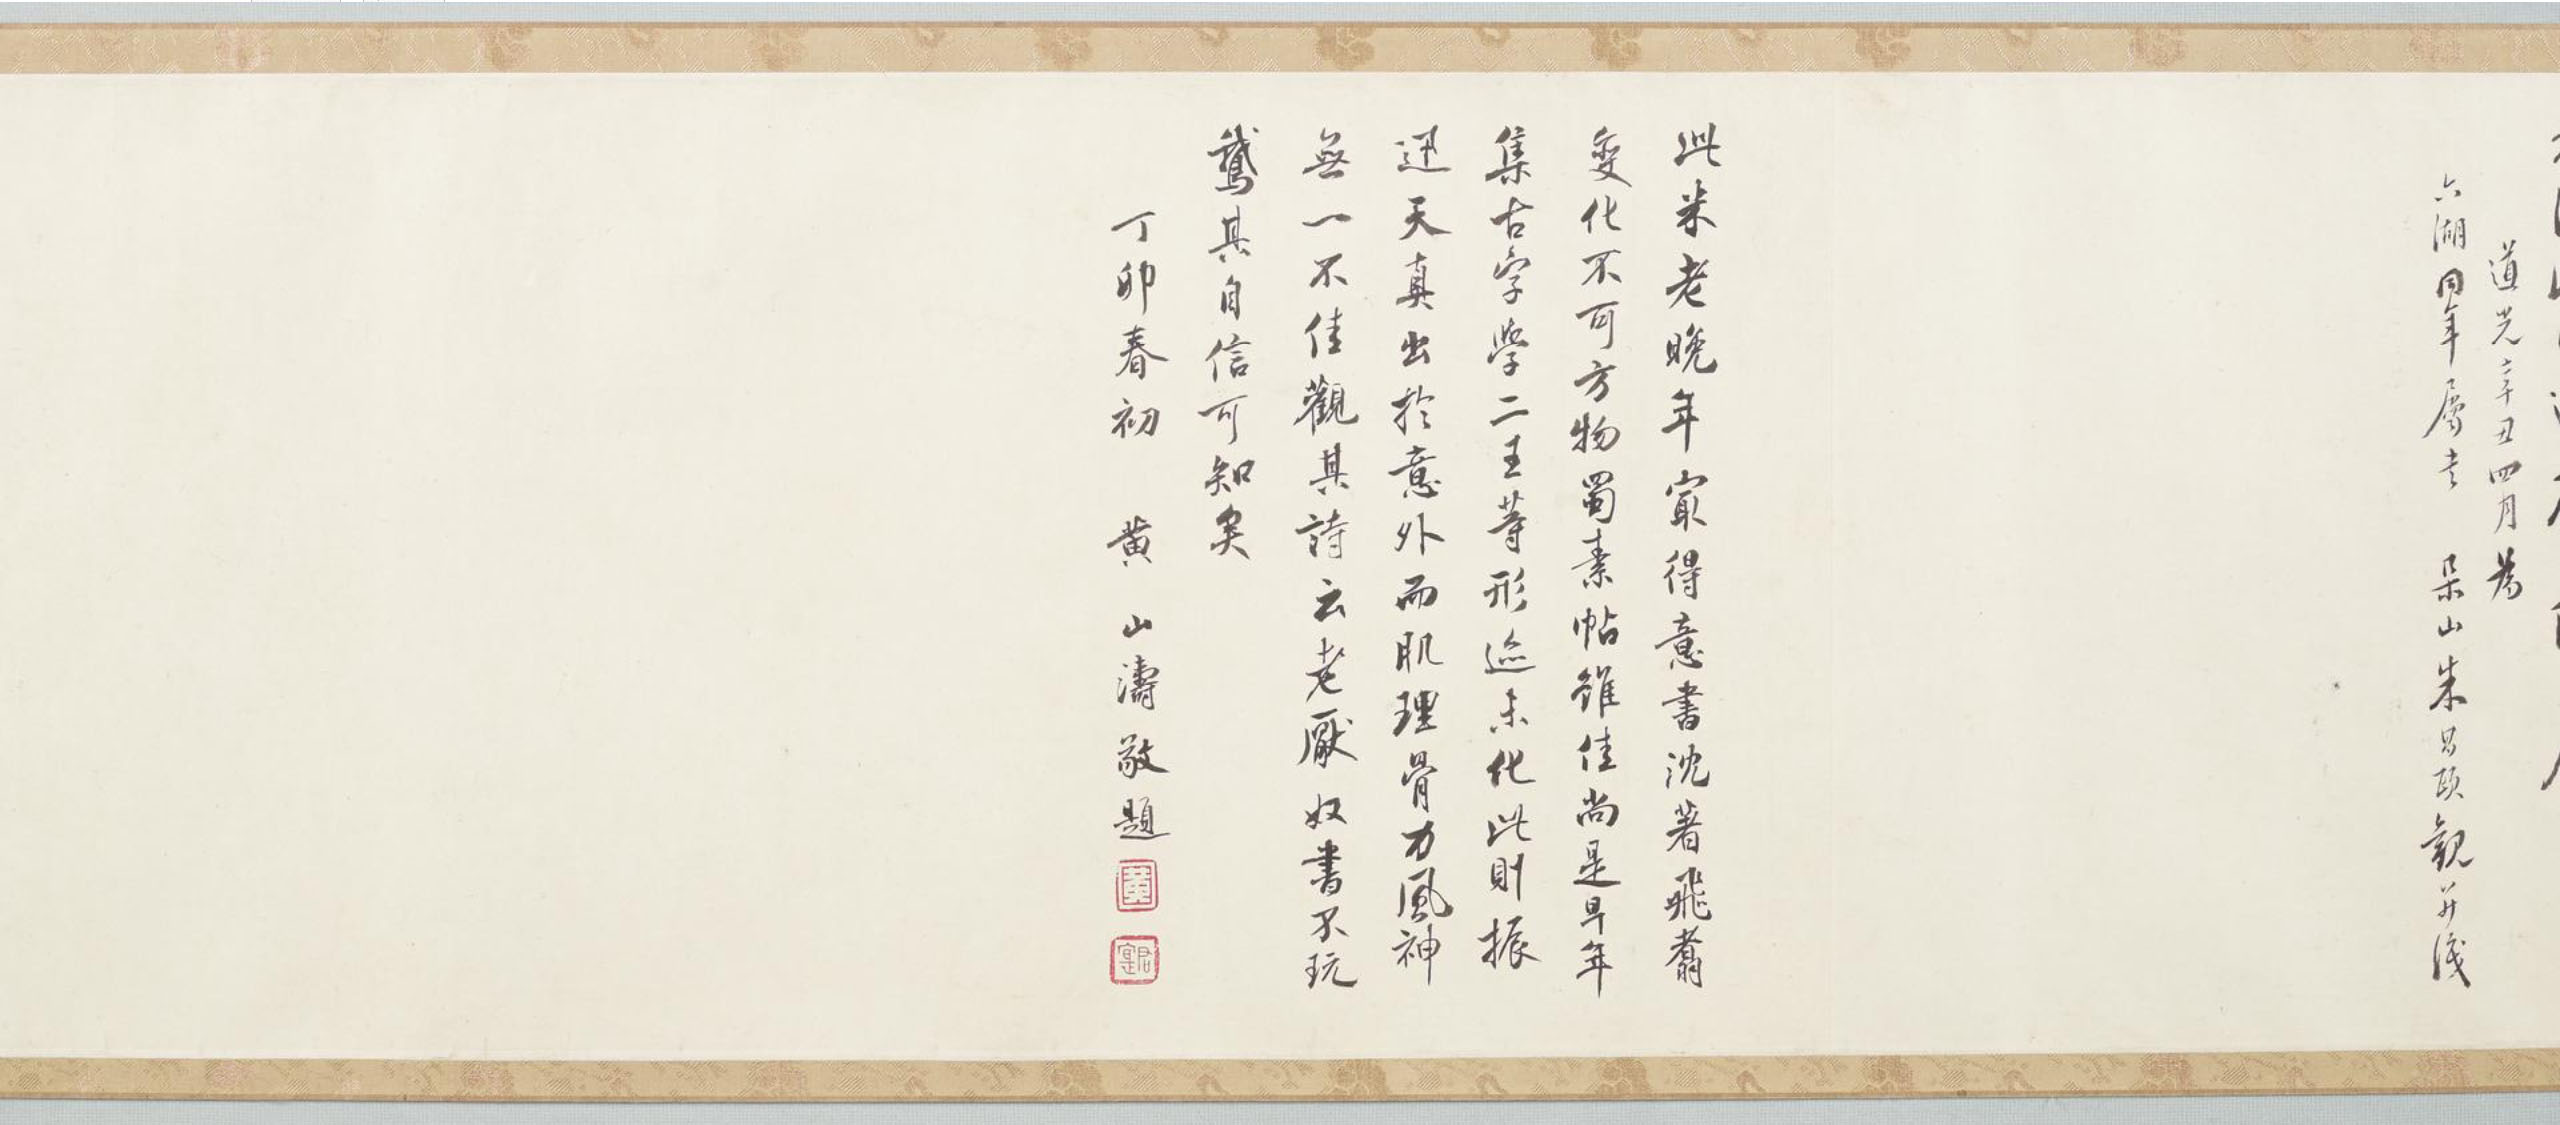 道光辛丑四月為
六湖同年屬書 朵山朱昌頤觀并識
此米老晚年冣得意書沈著飛翥
變化不可方物蜀素帖雖佳尚是早年
集古字學二王等形迹未化此則振
迅天真出於意外而肌理骨力風神
無一不佳觀其詩云老厭奴書不玩
鵞其自信可知矣
丁卯春初 黃山濤敬題
黃
君寔